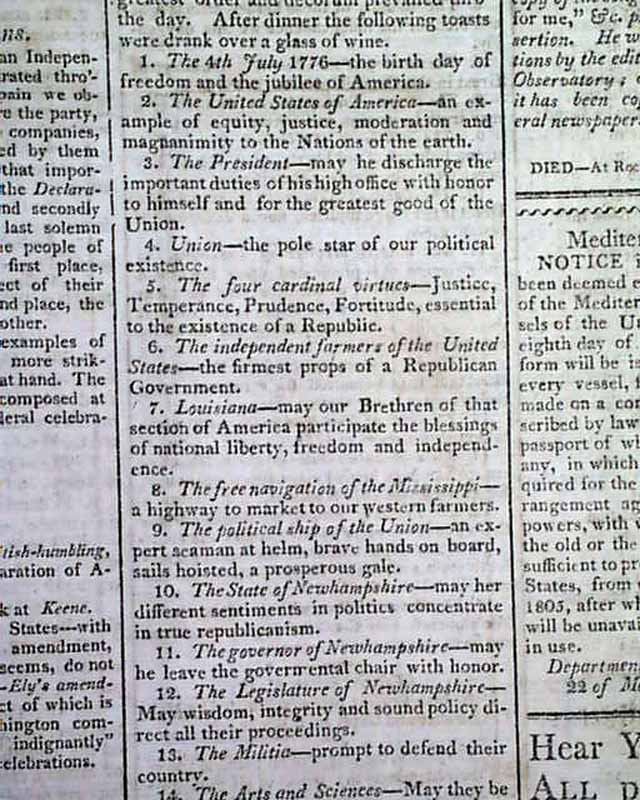 ns.
an Indepen-
rated thro'-
pain we ob-
re the party,
companies,
ed by them
that impor-
the Declara-
nd secondly
last solemn
e people of
first place,
ect of their
nd place, the
other.
examples of
more strik-
at hand. The
composed at
leral celebra-
tish-humbling,
aration of A-
k at Keene.
States--with
amendment,
seems, do not
-Ely's amend-
ct of which is
hington com-
indignantly"
celebrations.
greatest order and decorum prevailed thro'
the day. After dinner the following toasts
were drank over a glass of wine.
1. The 4th July 1776—the birth day of
freedom and the jubilee of America.
2. The United States of America—an ex-
ample of equity, justice, moderation and
magnanimity to the Nations of the earth.
3. The President—may he discharge the
important duties of his high office with honor
to himself and for the greatest good of the
Union.
4. Union—the pole star of our political
existence.
5. The four cardinal virtues—Justice,
Temperance, Prudence, Fortitude, essential
to the existence of a Republic.
6. The independent farmers of the United
States—the firmest props of a Republican
Government.
7. Louisiana—may our Brethren of that
section of America participate the blessings
of national liberty, freedom and independ-
ence.
8. The free navigation of the Mississippi—
a highway to market to our western farmers.
9. The political ship of the Union—an ex-
pert seaman at helm, brave hands on board,
sails hoisted, a prosperous gale.
10. The State of Newhampshire—may her
different sentiments in politics concentrate
in true republicanism.
11. The governor of Newhampshire—may
he leave the governmental chair with honor.
12. The Legislature of Newhampshire—
May wisdom, integrity and sound policy di-
rect all their proceedings.
13. The Militia—prompt to defend their
country.
14. The Arts and Sciences—May they be
for me," &c. p
sertion. He w
tions by the edit
Observatory ;
it has been co
eral newspaper
DIED—At Roc
Mediter
NOTICE i
been deemed e
of the Mediter
sels of the Un
eighth day of
form will be is
every vessel,
made on a cor
scribed by law
passport of wh
any, in which
quired for the
rangement ag
powers, with
the old or the
sufficient to pr
States, from
1805, after wh
will be unavai
in use.
Departmen
22 of M
Hear Y
ALL p